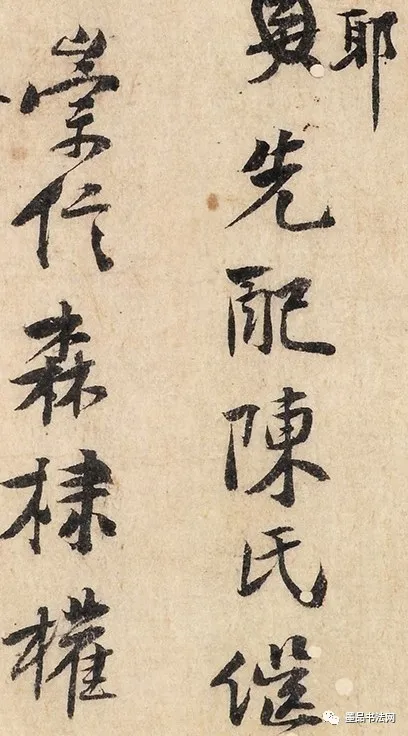 耶
先配陳氏繼
崇信森棣權
墨品书法网